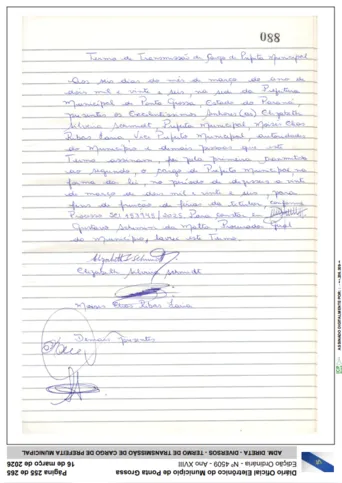 088
Termo de Transmissão de Cargo de Prefeito Municipal
Aos seis dias do mês de março do ano de
dois mil e vinte e seis, na sede da Prefeitura
Municipal de Ponta Grossa, Estado do Paraná,
presentes os Excelentíssimos Senhores(as) Elizabeth
Silveira Schmidt, Prefeita Municipal, Moisés Elias
Ribas Faria, Vice Prefeito Municipal, autoridades
do Município e demais pessoas que este
Termo assinam, foi pela primeira transmitido
ao segundo, o cargo de Prefeito Municipal, na
forma da lei, no período de a vinte
de março de dois mil e vinte e seis, para
fins de fruição de férias da titular, conforme
Processo SEI /2025. Para constar eu,
Gustavo da Matta, Procurador Geral
do Município, lavrei este Termo.
Elizabeth Silveira Schmidt
Demais Presentes
ADM. DIRETA - DIVERSOS - TERMO DE TRANSMISSÃO DE CARGO DE PREFEITA MUNICIPAL
Edição Ordinária - Nº 4509 - Ano XVIII
16 de março de 2026
Diário Oficial Eletrônico do Município de Ponta Grossa
Página 255 de 265
ASSINADO DIGITALMENTE POR: